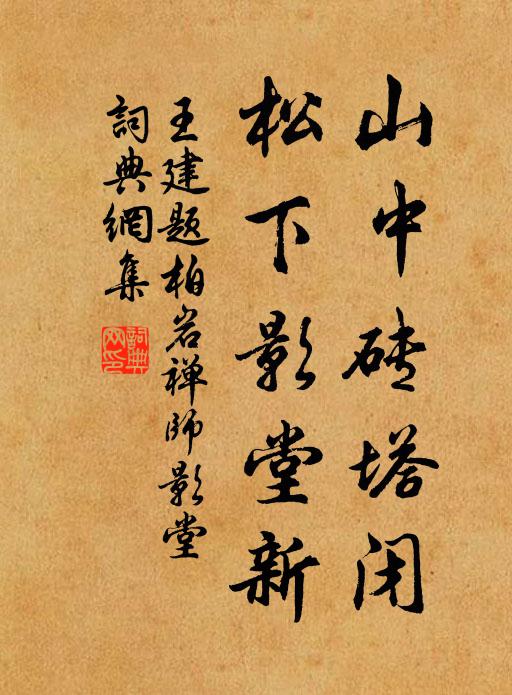 山中砖塔闭
松下影堂新
王建题柏岩禅師影堂
詞典網集
詞典網印